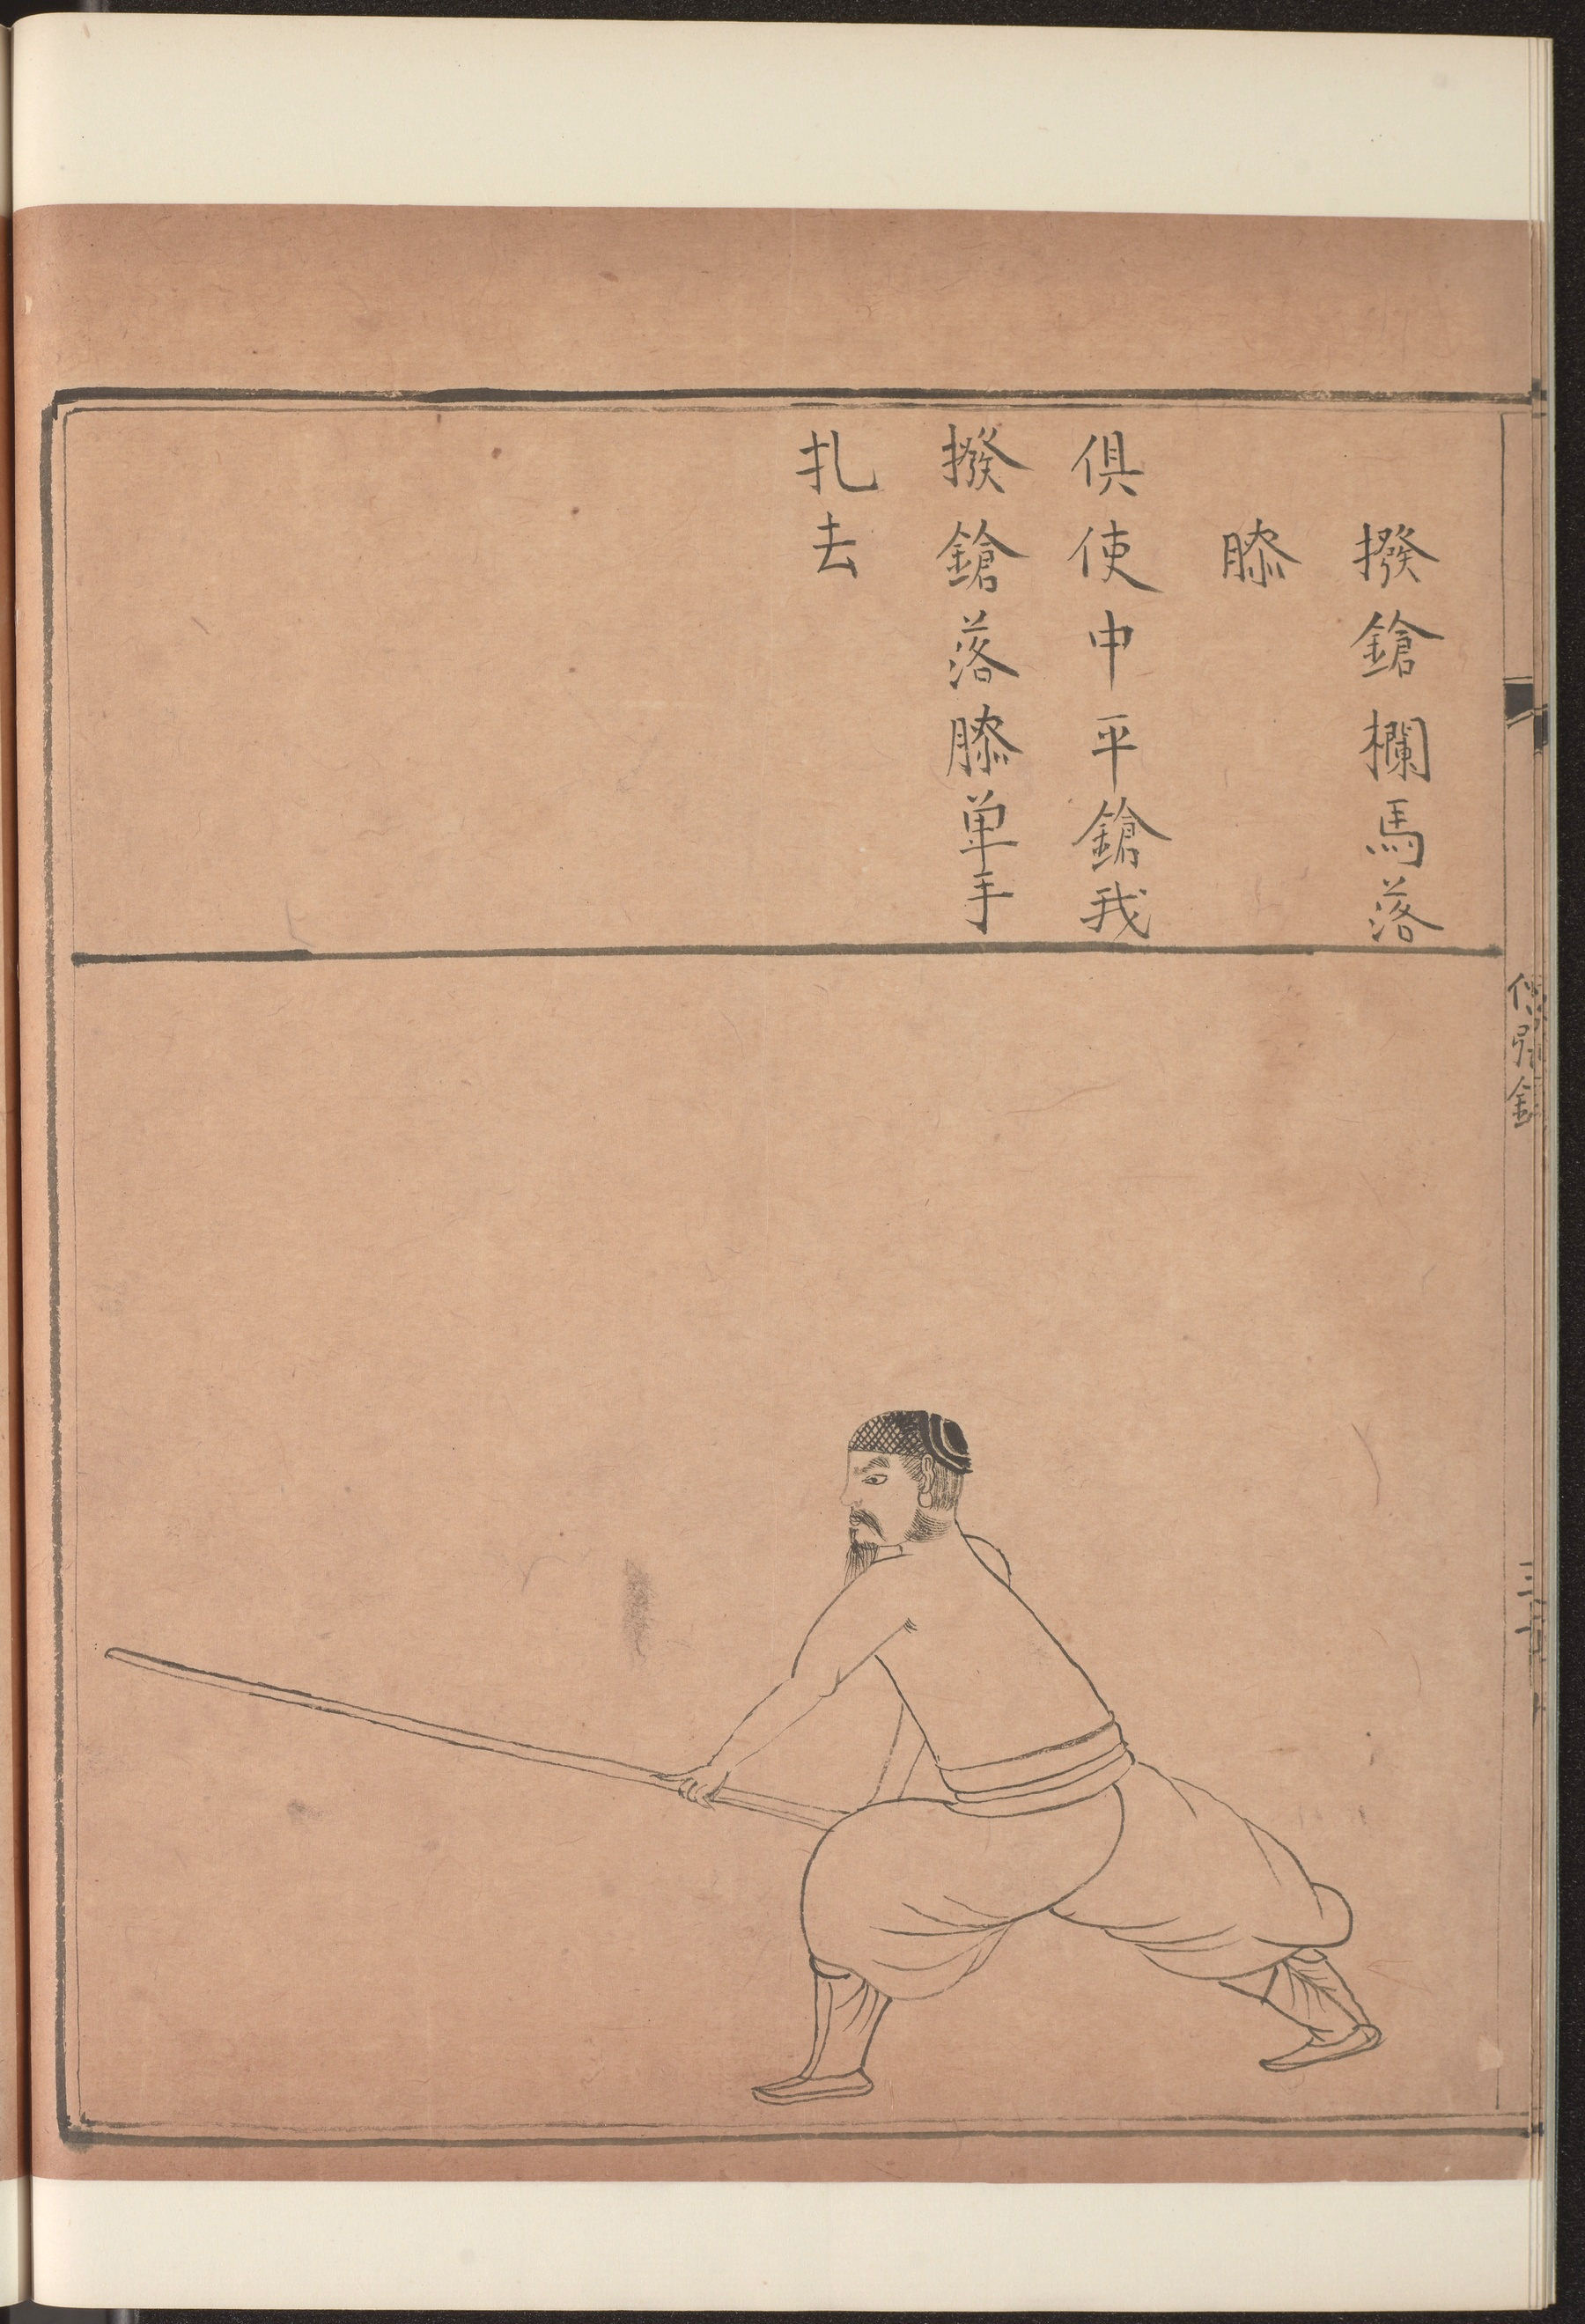 撥鎗欄馬落
膝
俱使中平鎗我
撥鎗落膝单手
扎去